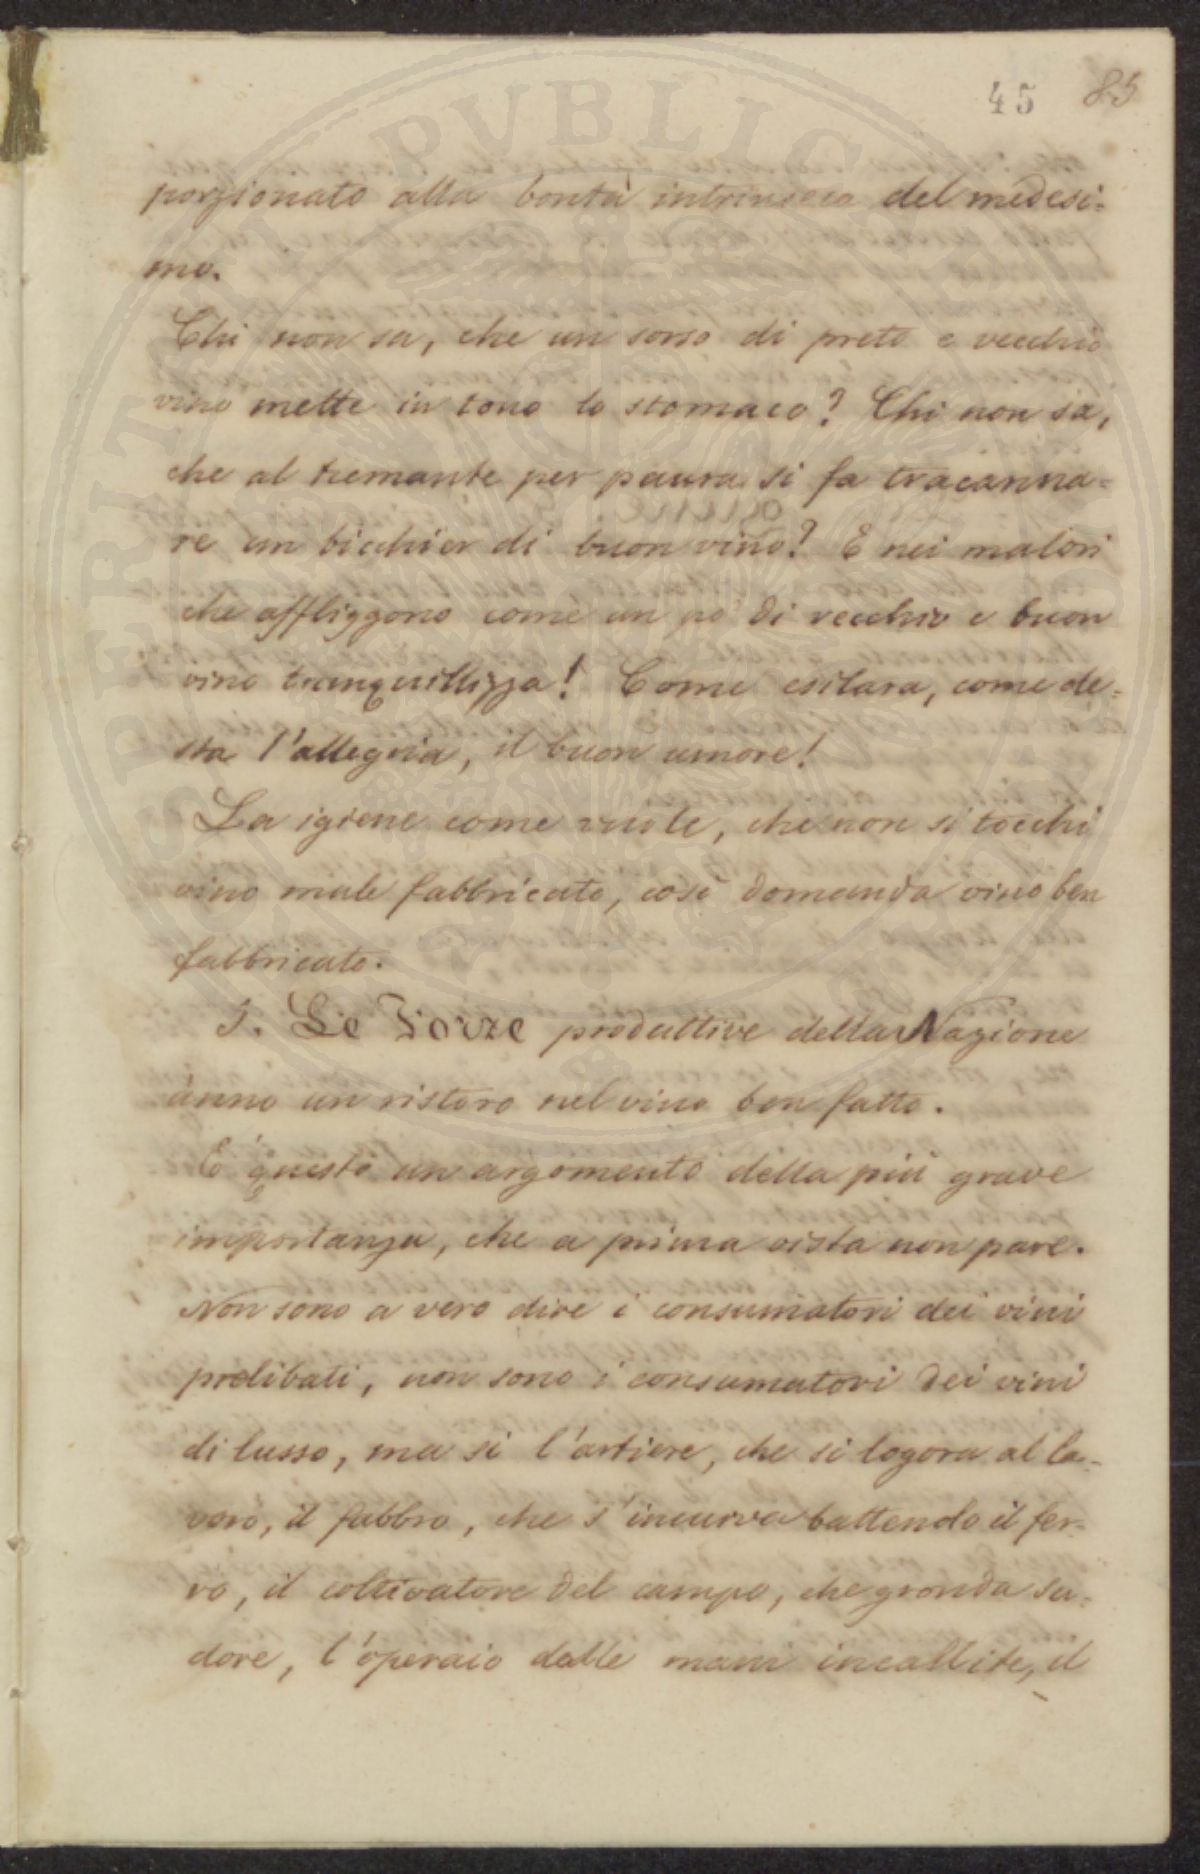 45 85
porzionato alla bontà intrinseca del medesi=
mo.
Chi non sa, che un sorso di preto e vecchio
vino mette in tono lo stomaco? Chi non sa,
che al tremante per paura si fa tracanna=
re un bicchier di buon vino? E nei malori
che affliggono come un pò di vecchio e buon
vino tranquillizza! Come esilara, come de=
sta l'allegria, il buon umore!
La igiene come vuole, che non si tocchi
vino male fabbricato, così domanda vino ben
fabbricato.
5. Le Forze produttive della Nazione
ànno un ristoro nel vino ben fatto.
È questo un argomento della più grave
importanza, che a prima vista non pare.
Non sono a vero dire i consumatori dei vini
prelibati, non sono i consumatori dei vini
di lusso, ma si l'artiere, che si logora al la=
voro, il fabbro, che s'incurva battendo il fer=
ro, il coltivatore del campo, che gronda su=
dore, l'operaio dalle mani incallite, il